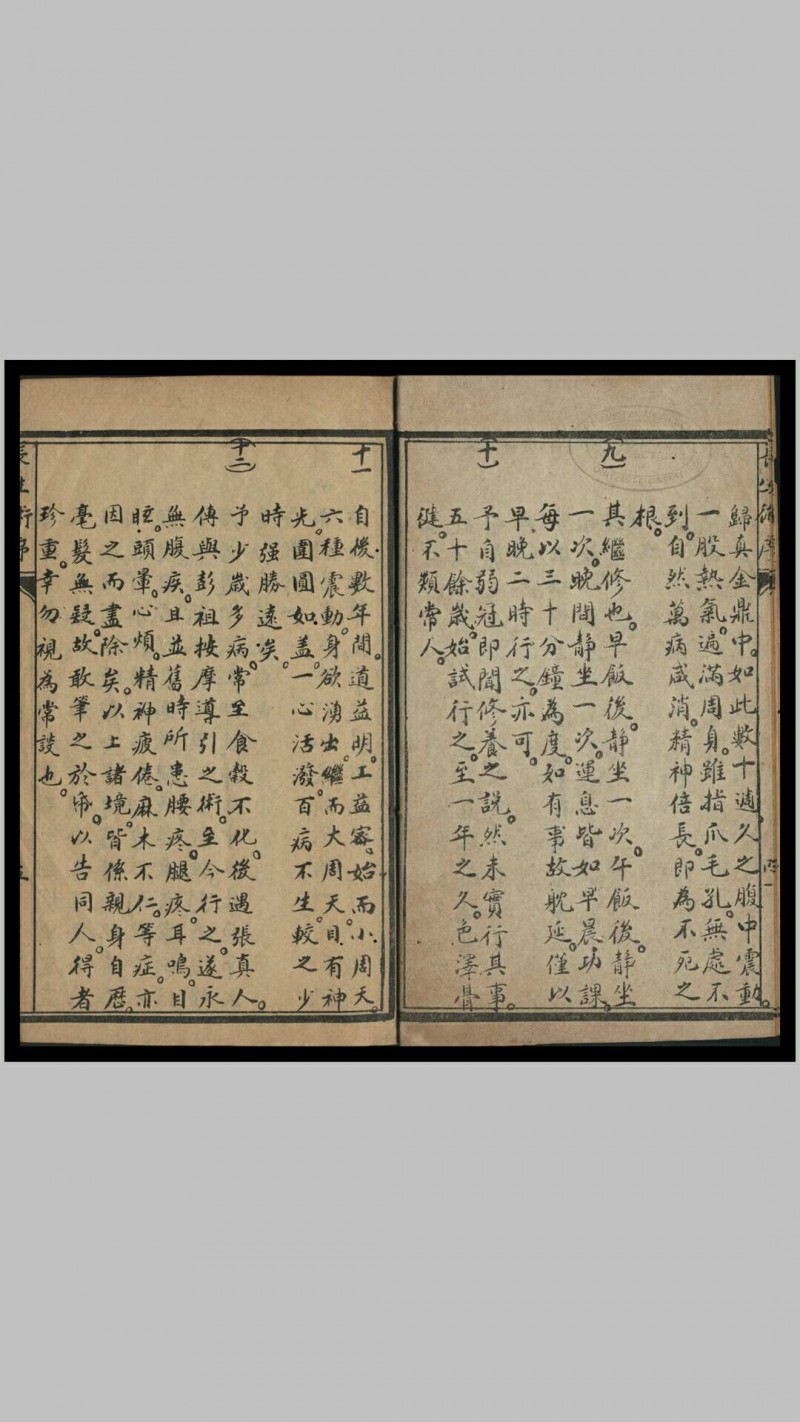 歸真金鼎中。如此數十遍。久之腹中震動。
一股熱氣。遍滿周身。雖指爪毛孔。無處不
到。自然萬病咸消。精神倍長。即為不死之
根。
九
其繼修也。早飯後。靜坐一次。午飯後。靜坐
一次。晚間靜坐一次。運息皆如早晨功課。
每以三十分鐘為度。如有事故躭延。僅以
早晚二時行之。亦可。
十
予自弱冠即聞修養之說。然未實行其事。
五十餘歲。始試行之。至一年之久。色澤骨
健。不類常人。
十一
自後數年間。道益明。工益密。始而小周天。
六種震動。身欲湧出。繼而大周天。目有神
光。圍圓如蓋。一心活潑。百病不生。較之少
時强勝遠矣。
十二
予少歲多病。常至食穀不化。後遇張真人。
傳與彭祖按摩導引之術。至今行之。遂永
無腹疾。且並舊時所患腰疼。腿疼。耳鳴。目
眩。頭暈。心煩。精神疲倦。麻木不仁。等症。亦
因之而盡除矣。以上諸境。皆係親身自歷。
毫髮無疑。故敢筆之於帋。以告同人。得者
珍重。幸勿視為常談也。